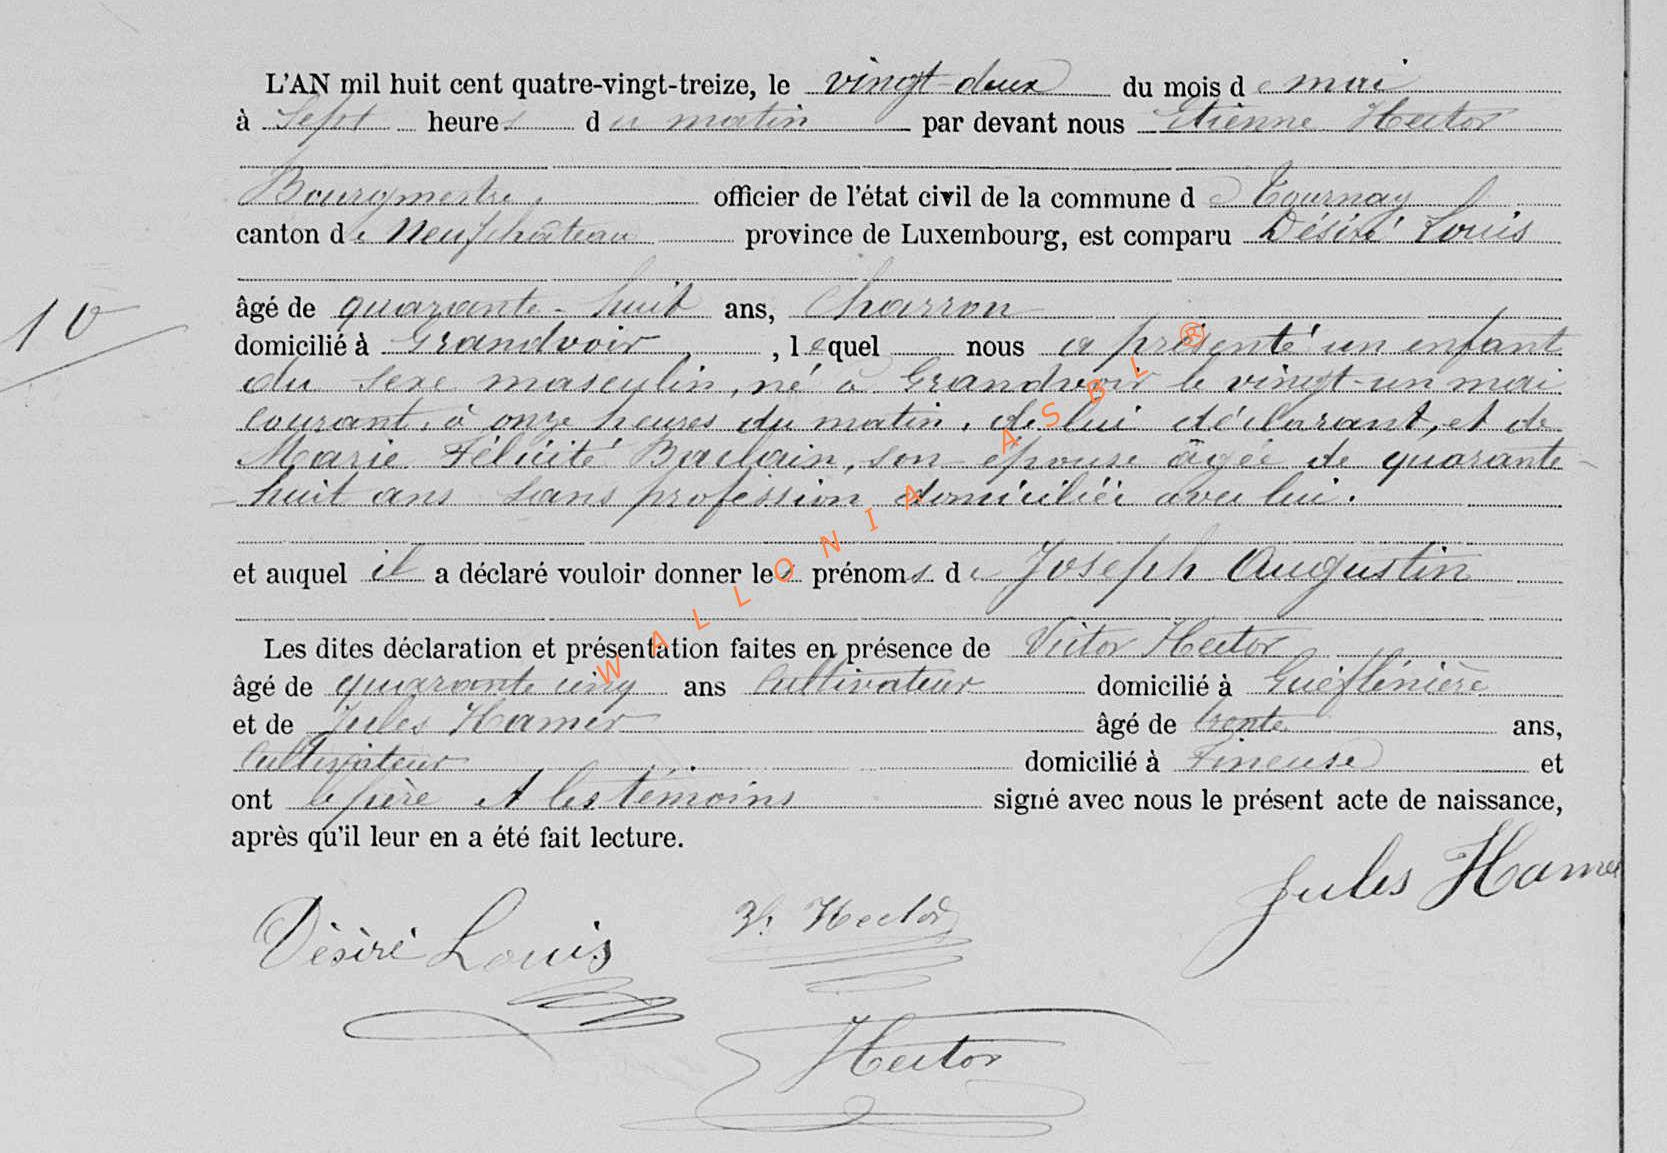 L'AN mil huit cent quatre-vingt-treize, le vingt-deux du mois de mai
à Sept heures du matin par devant nous Etienne Hector
Bourgmestre, officier de l'état civil de la commune de Tournay
canton de Neufchâteau province de Luxembourg, est comparu Désiré Louis
10
âgé de quarante-huit ans, Charron
domicilié à Grandvoir, lequel nous a présenté un enfant
du sexe masculin, né à Grandvoir le vingt-un mai
courant, à onze heures du matin, de lui déclarant, et de
Marie Félicité Baclain, son épouse âgée de quarante-
huit ans sans profession domiciliée avec lui.
et auquel il a déclaré vouloir donner les prénoms de Joseph Augustin
Les dites déclaration et présentation faites en présence de Victor Hector
âgé de quarante cinq ans Cultivateur domicilié à
et de Jules Hamer âgé de trente ans,
Cultivateur domicilié à Fineuse et
ont le père et les témoins signé avec nous le présent acte de naissance,
après qu'il leur en a été fait lecture.
Jules Hamer
Désiré Louis V. Hector
Hector
WALLONIA ASBL ®